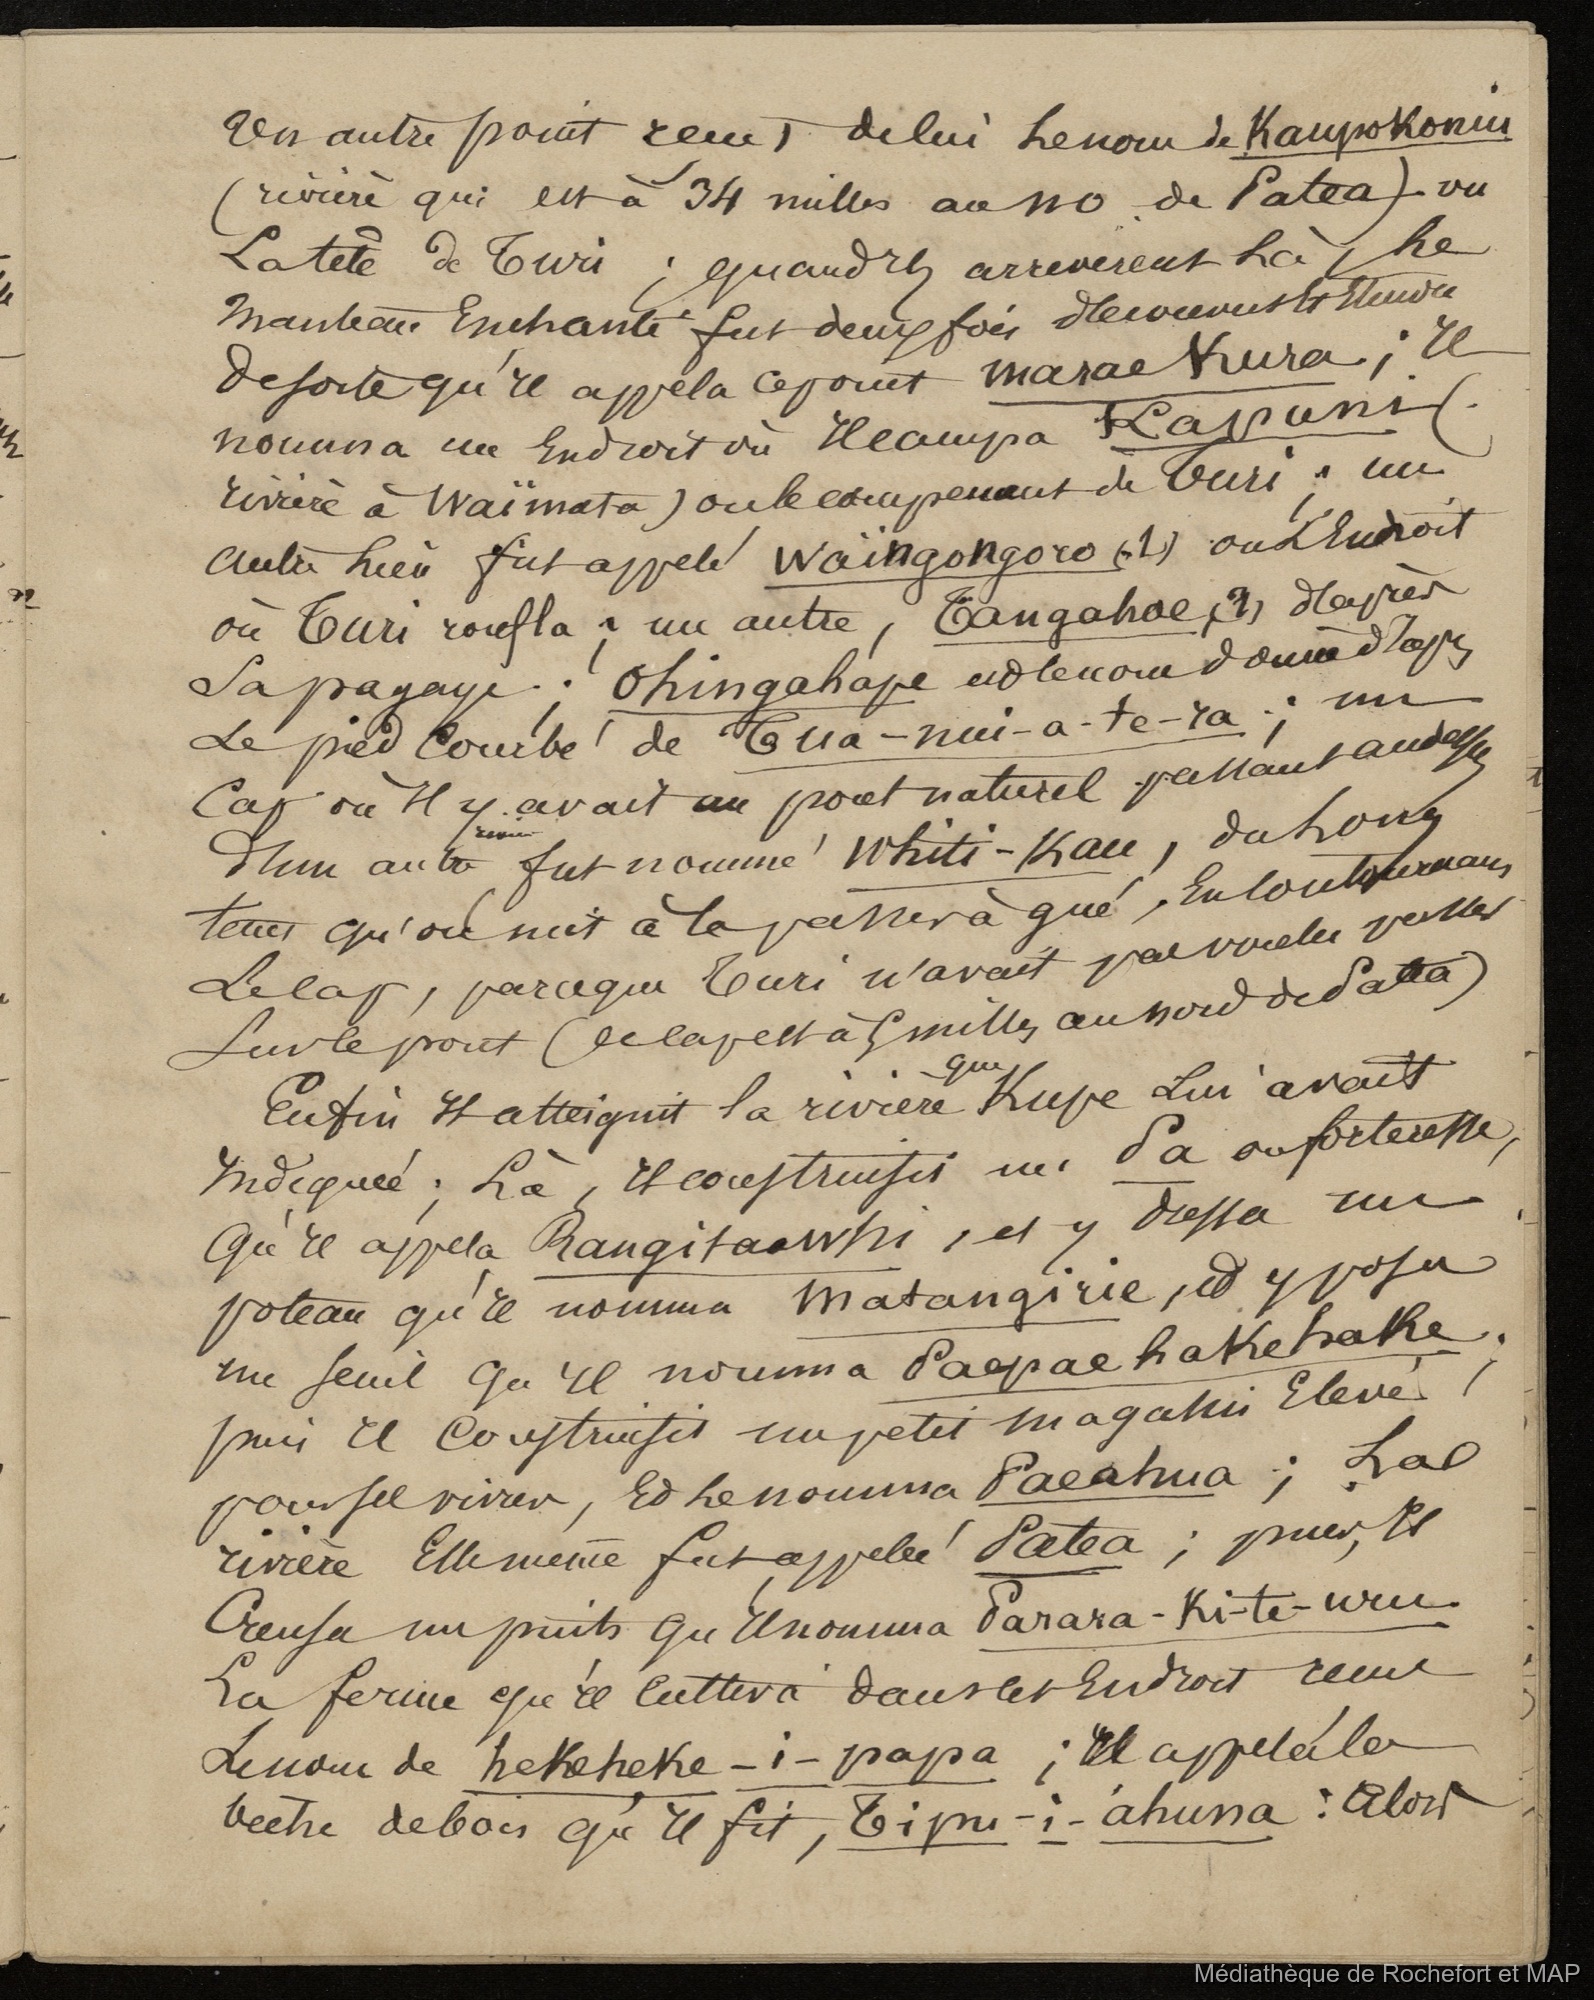 Un autre point recut de lui le nom de Kaupokonui
(rivière qui est à 34 milles au NO de Patea) ou
La tete de Turi ; quand ils arriverent là, le
Manteau Enchanté fut deux fois découvert et Etendu
de sorte qu'il appela ce point marae Kura ; il
nomma un Endroit où il campa Kapuni (
rivière à Waïmata) ou le campement de Turi ; un
autre lieu fut appelé Waïngongoro (1) ou L'Endroit
où Turi ronfla ; un autre, Tangahoe (2) d'après
Sa pagaye ; Ohingahape est le nom donné d'après
Le pied Courbé de Tua-nui-a-te-ra ; un
Cap où il y avait un pont naturel passant au dessus
d'un autre rivière fut nommé Whiti-Kau, du long
temps qu'on mit à la passer à gué, En Contournant
Le Cap, parceque Turi n'avait pas voulu passer
Sur le pont (ce cap est à 5 milles au nord de Patea)
Enfin il atteignit la rivière que Kupe Lui avait
Indiquée ; Là, il construisit un Pa ou forteresse,
Qu'il appela Rangitaawhi, et y dressa un
poteau qu'il nomma Matangirie, et y posa
un seuil Qu'il nomma Paepaehakehake ;
puis il Construisit un petit magasin Elevé
pour ses vivres, Et le nomma Paeahua ; La
rivière Elle meme fut appelée Patea ; puis, il
Creusa un puits Qu'il nomma Parara-Ki-te-uru
La ferme qu'il Cultiva dans cet Endroit recut
Le nom de hekeheke-i-papa ; il appela la
beche de bois qu'il fit, Tipu-i-ahuna : Alors
Médiathèque de Rochefort et MAP